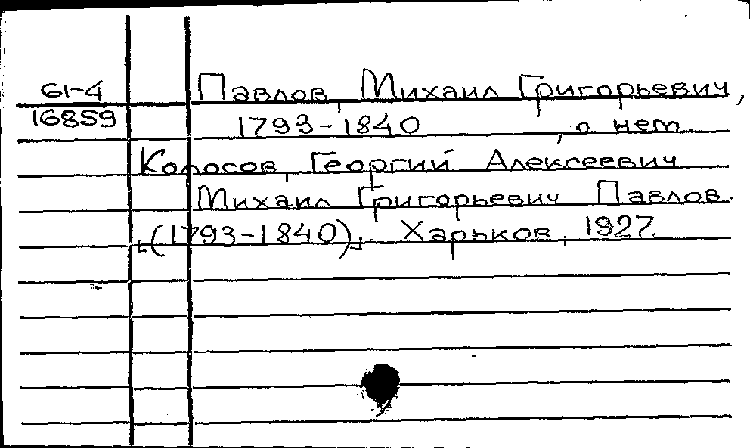 61-4
16859
Павлов, Михаил Григорьевич,
1793-1840, о нем.
Колосов, Георгий Алексеевич
Михаил Григорьевич Павлов.
(1793-1840). Харьков, 1927.